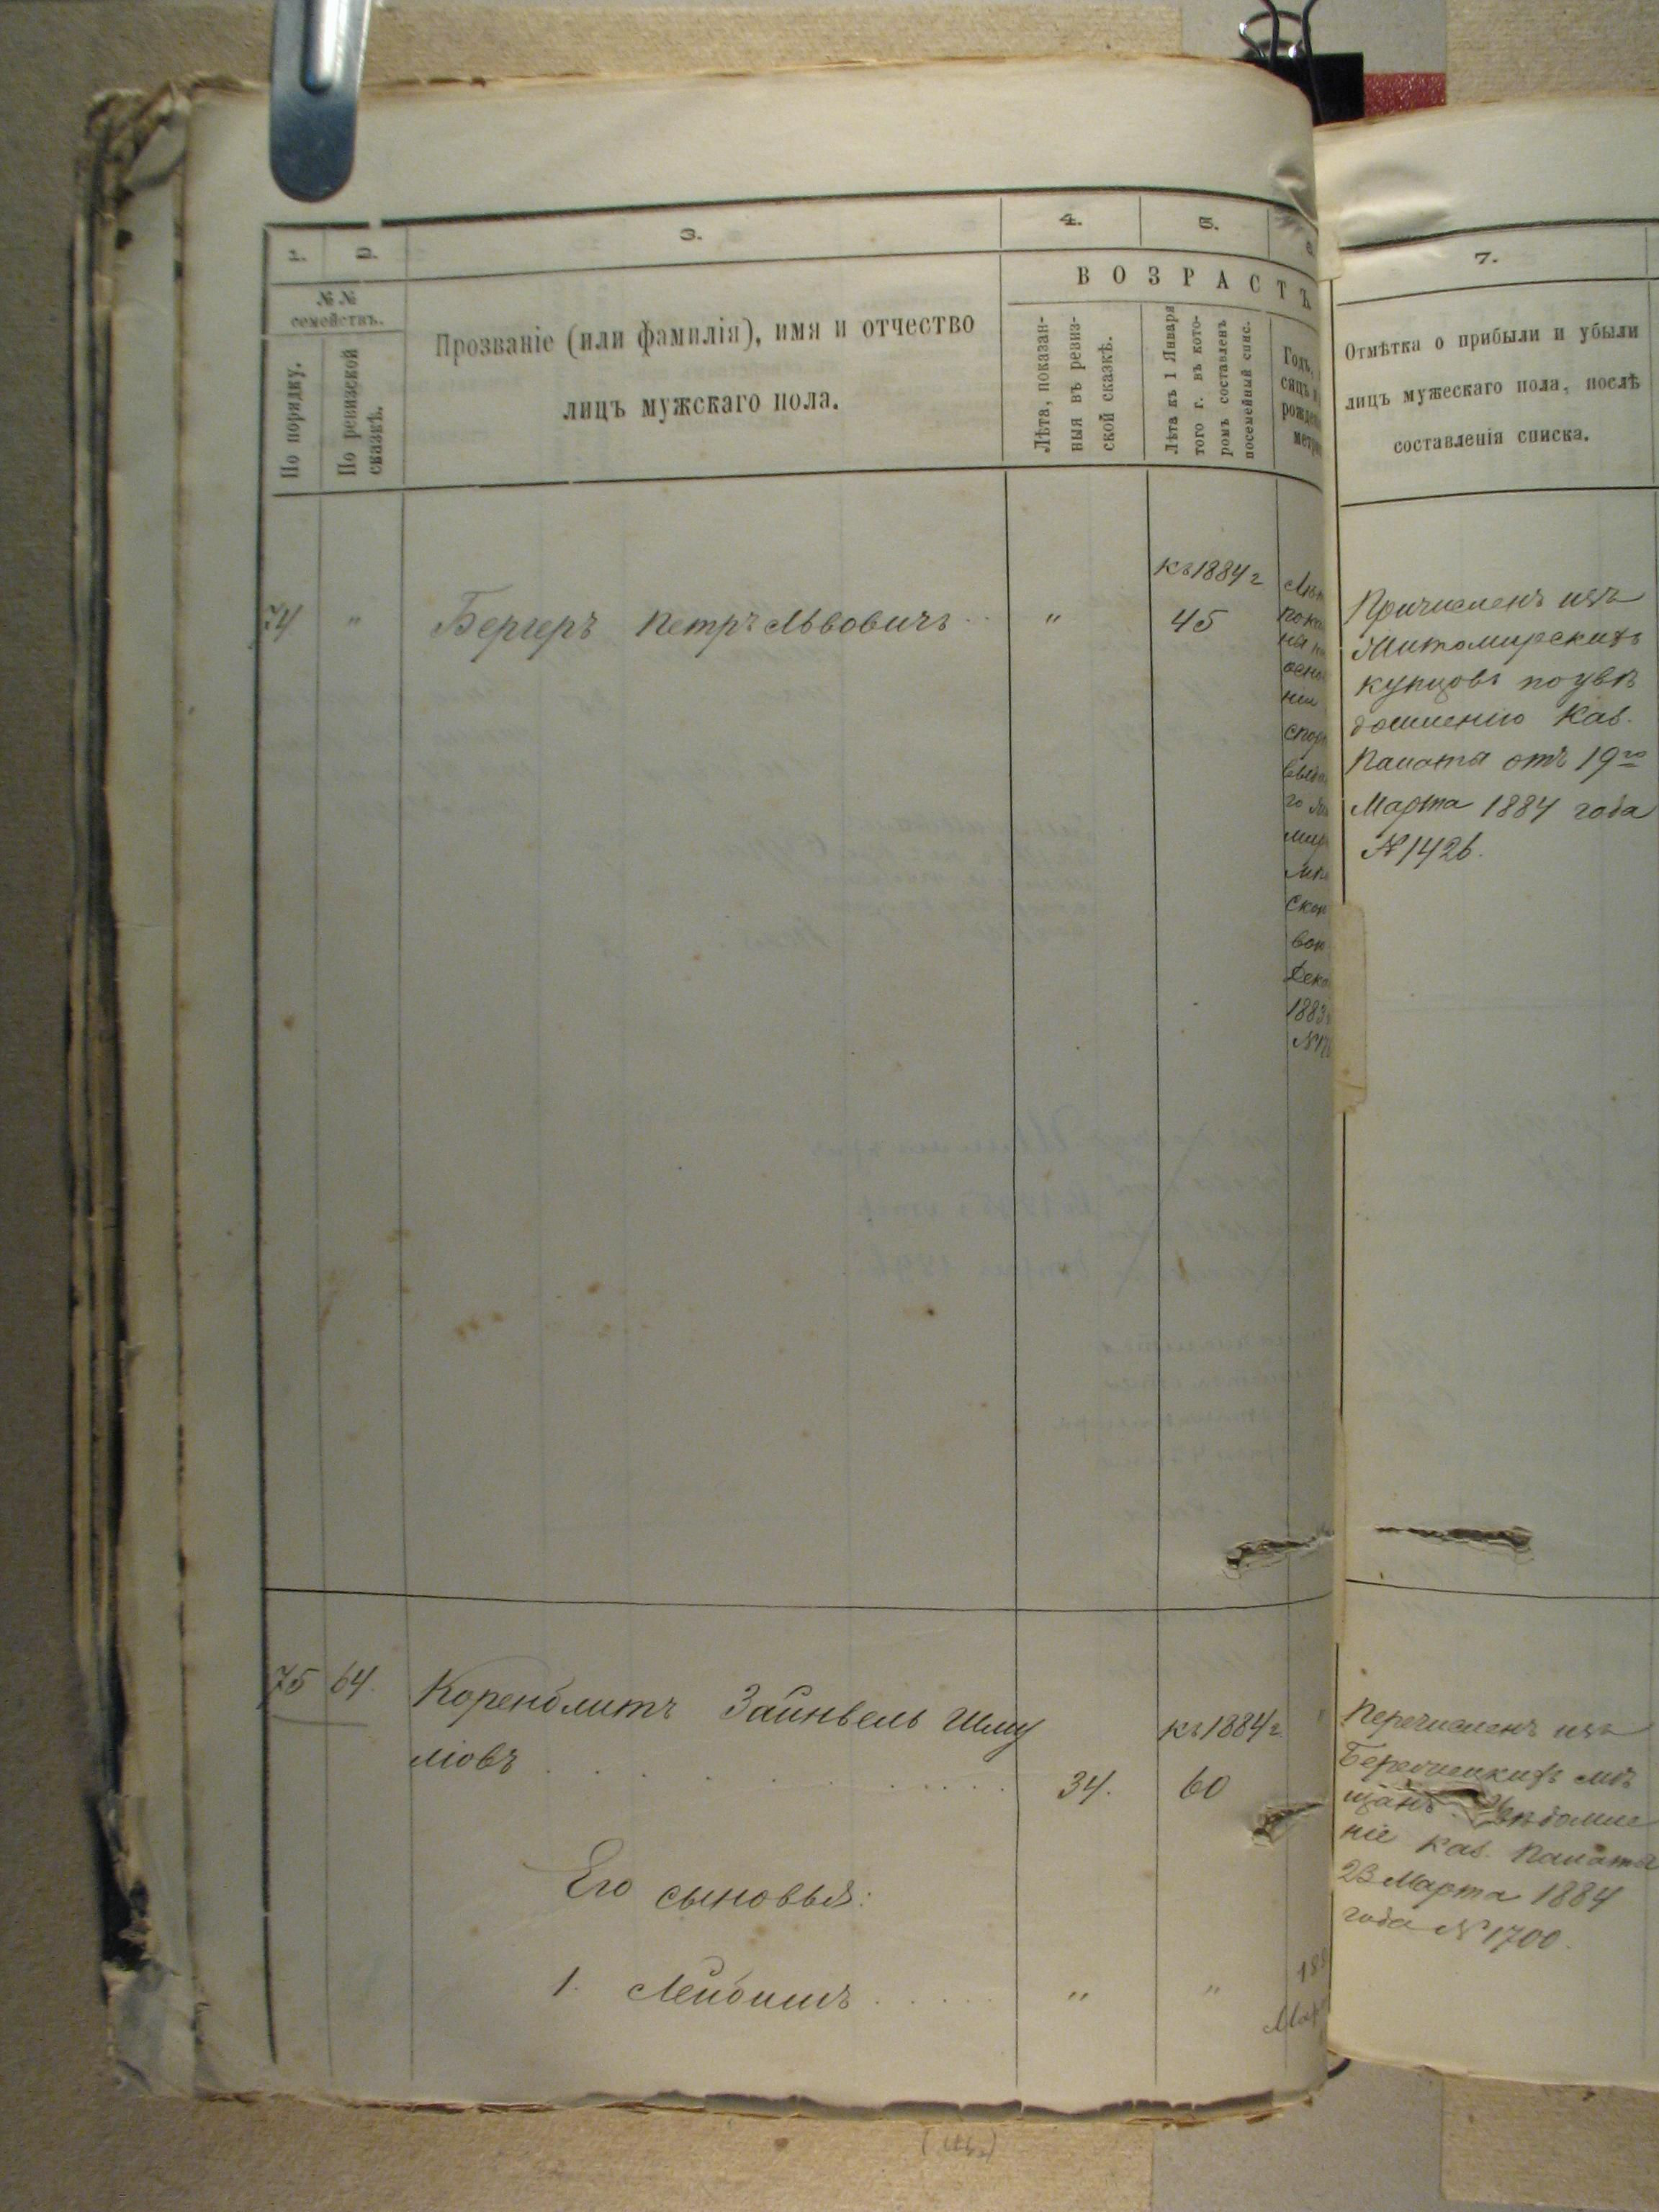 1.
2.
3.
4.
5.
7.
№ №
семействъ.
По порядку.
По ревизской
сказкѣ.
Прозваніе (или фамилія), имя и отчество
лицъ мужскаго пола.
ВОЗРАСТЪ
Лѣта, показан-
ныя въ ревиз-
ской сказкѣ.
Лѣта къ 1 Января
того г. въ кото-
ромъ составленъ
посемейный спис.
Годъ,
сяцъ
рожде
метр
Отмѣтка о прибыли и убыли
лицъ мужескаго пола, послѣ
составленія списка.
74 " Бергеръ Петръ Львовичъ " къ 1884 г
45
пока
осно
нии
спор
го
мир
Скон
вон
Дека
1883
Причисленъ изъ
Житомирскихъ
купцовъ по увѣ
домленію Каз.
Палаты отъ 19го
Марта 1884 года
№ 1426.
75 64. Коренблитъ Зайнвель Шму
ліовъ 34. къ 1884 г.
60
Перечисленъ изъ
мѣ
щанъ. Увѣдомле
ніе Каз. Палаты
23 Марта 1884
года № 1700.
Его сыновья:
1. Лейбишъ " "
188
Мар